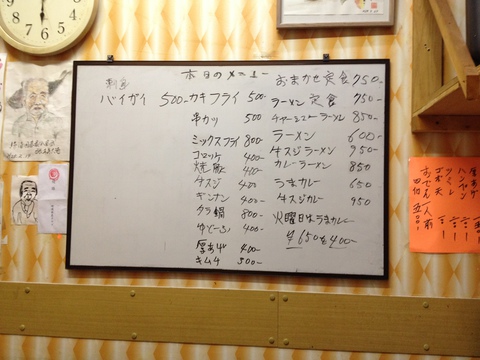 本日のメニュー
刺身
バイガイ 500-
カキフライ 500-
串カツ 500
ミックスフライ 800-
コロッケ 400-
焼豚 400-
牛スジ 400
ギンナン 400-
タラ鍋 800-
ゆどーふ 400-
厚あげ 400-
キムチ 500-
おまかせ定食 750-
ラーメン定食 750-
チャーシューラーメン 850-
ラーメン 600-
牛スジラーメン 950-
カレーラーメン 850
うまカレー 650
牛スジカレー 950
火曜日はうまカレー
¥650を400-
厚あげ
ゴボ天
おでん一人前
四切 五〇〇